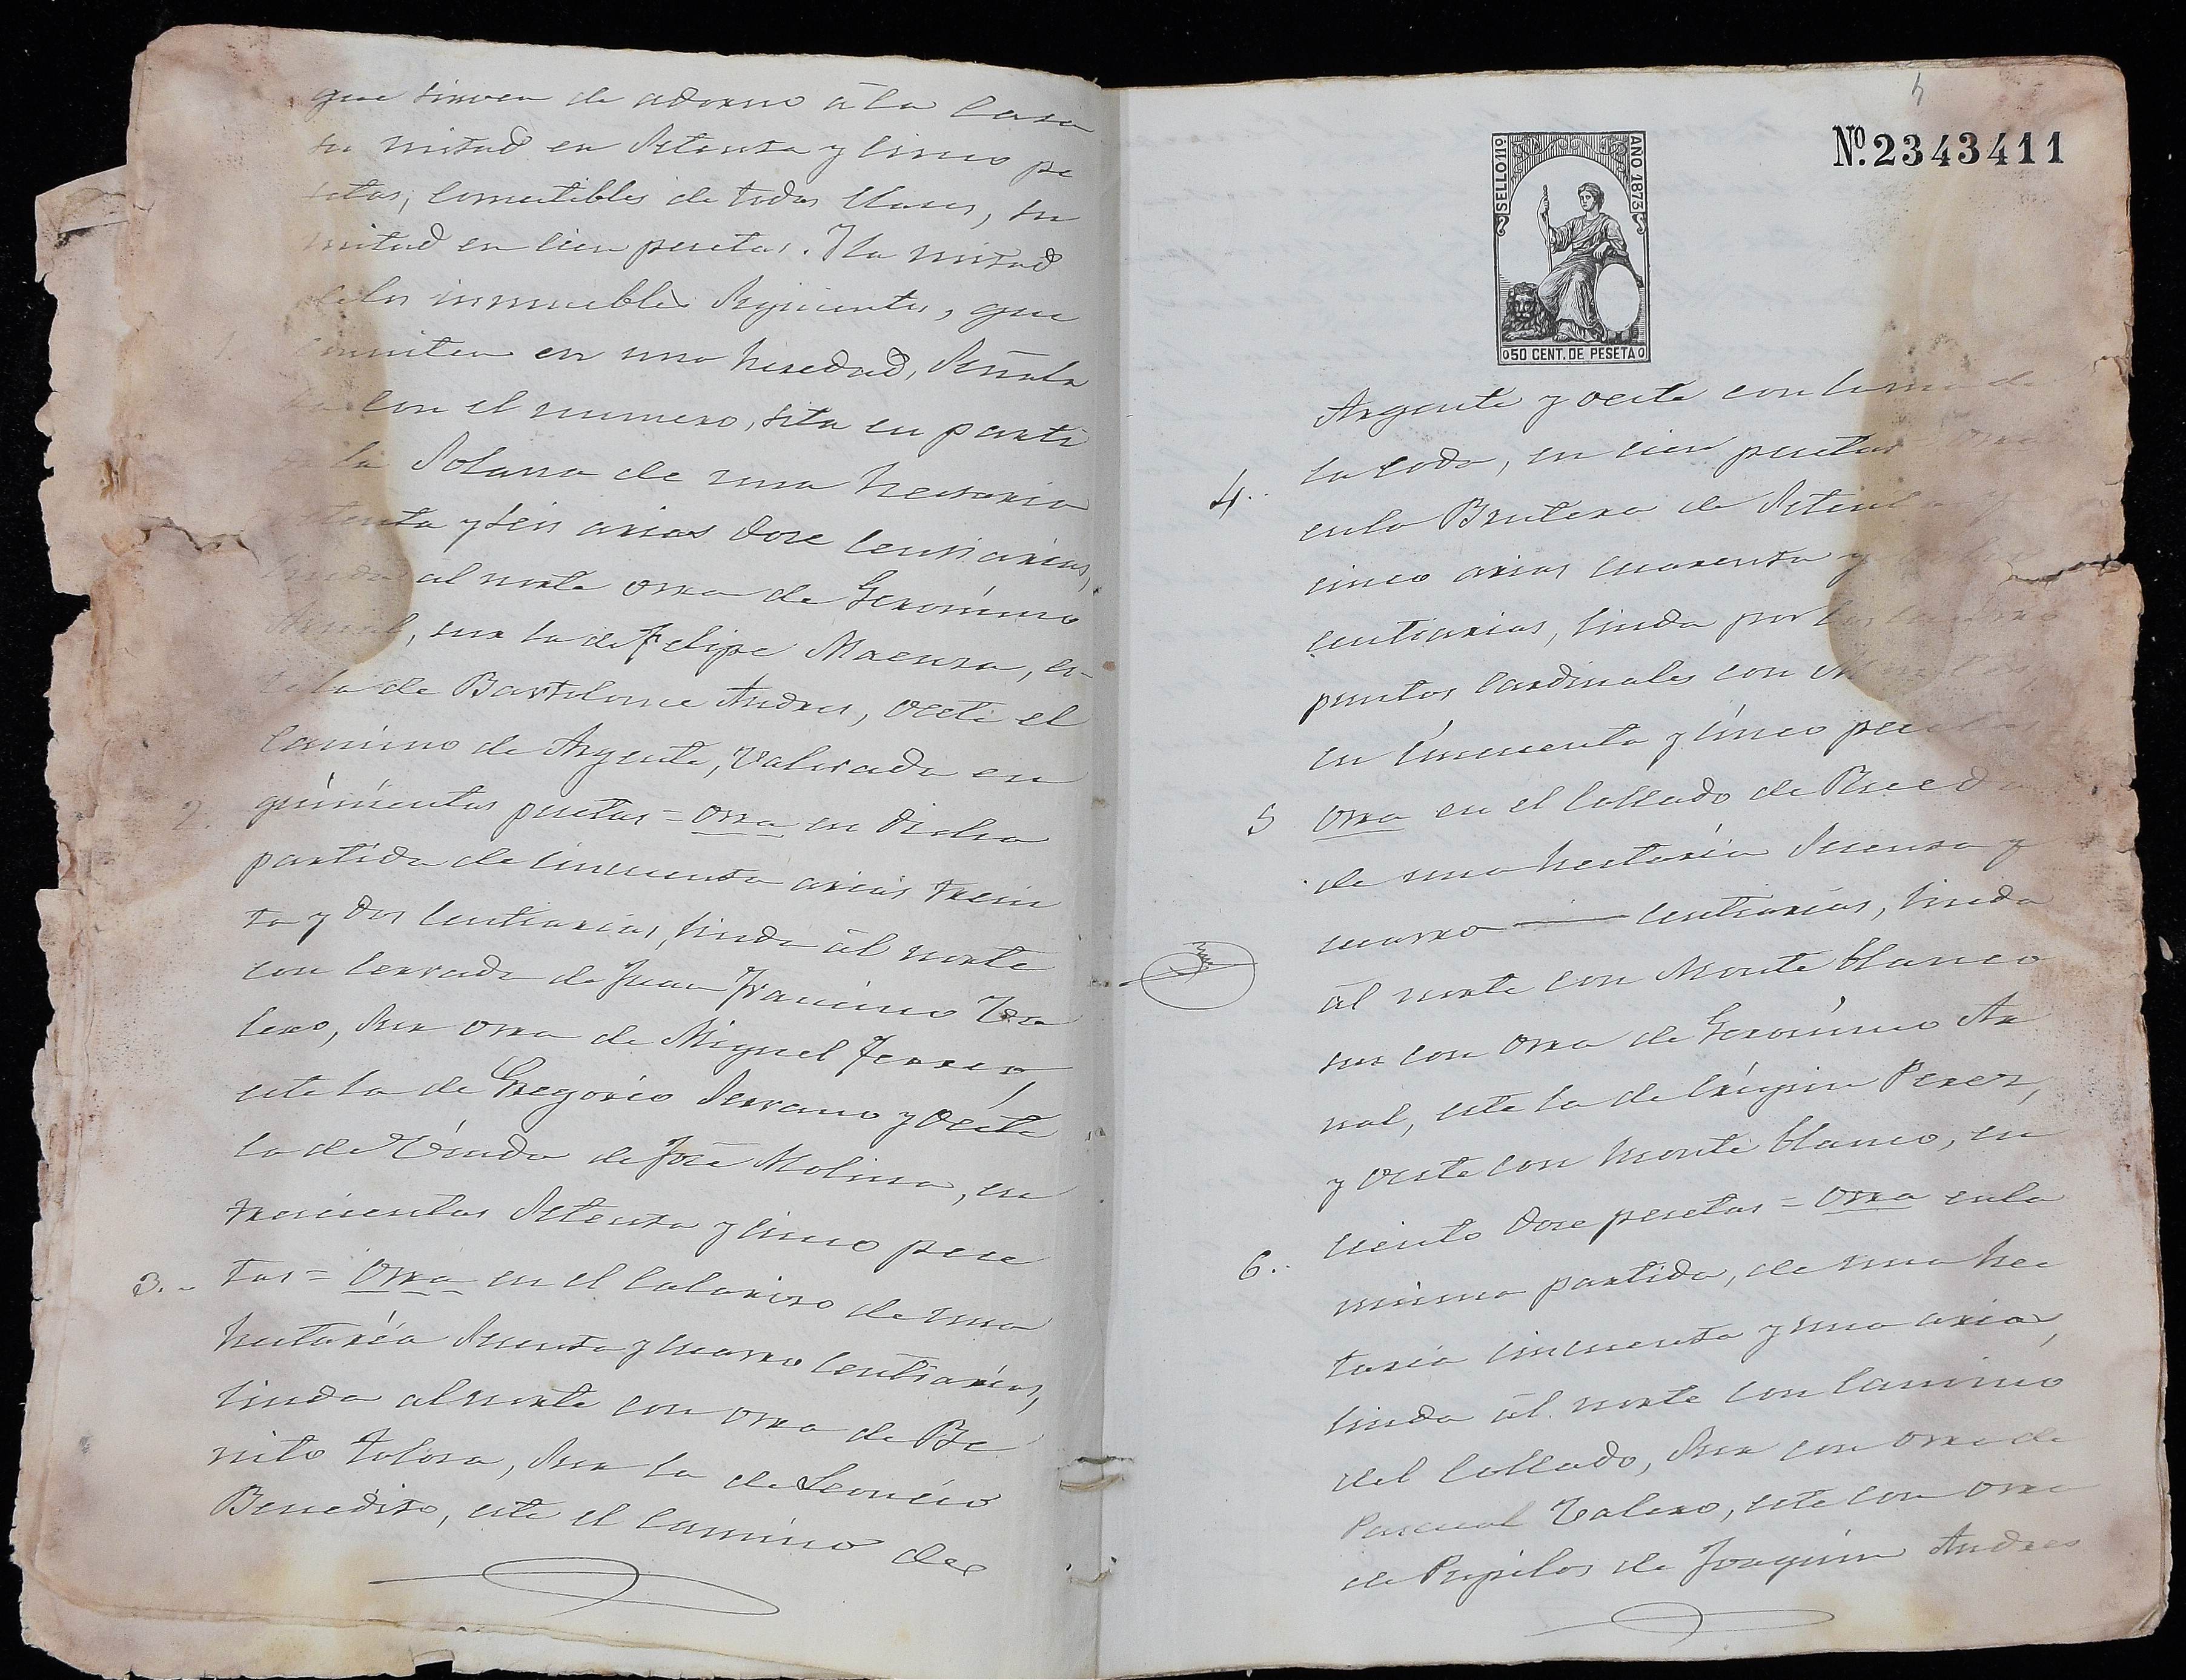 que sirven de adorno á la Casa
su mitad en Setenta y Cinco pe
setas, Comestibles de todas Clases, su
mitad en Cien pesetas. Y la mitad
de los inmuebles Siguientes, que
1. consisten en una heredad, Señala
da con el numero, sita en parti
da la Solana de una hectaria
setenta y seis arias doce Centiarias,
linda al norte otra de Geronimo
Arnal, sur la de Felipe Maenza, es-
te la de Bartolome Andres, Oeste el
Camino de Argente, Valorada en
2. quinientas pesetas = Otra en dicha
partida de cincuenta arias trein
ta y dos Centiarias, linda ál norte
con Cerrada de Juan Francisco Va
lero, Sur otra de Miguel Ferrer,
este la de Gregorio Serrano y Oeste
la de Viuda de José Molina, en
trescientas Setenta y cinco pese
3.. tas = Otra en el Calarizo de una
hectaréa Sesenta y cuatro Centiaréas,
linda al norte con otra de Be
nito Tolosa, Sur la de Leoncio
Benedito, este el Camino de
Nº. 2343411
SELLO 11º
AÑO 1873
50 CENT. DE PESETA
Argente y oeste con la
la Coda, en cien pesetas Otra
4.. en la Brutera de Setenta y
cinco arias cuarenta y
centiarias, linda por los cuatro
puntos Cardinales con
en Cincuenta y Cinco pesetas
5 Otra en el Collado de Rueda
de una hectaria Sesenta y
cuatro centiarias, linda
ál norte con Monte blanco
sur con otra de Geronimo Ar
nal, este la de Crispin Perez,
y oeste con Monte blanco, en
ciento doce pesetas = Otra en la
6.. misma partida, de una hec
taria cincuenta y una arias,
linda ál norte con Camino
del Collado, Sur con otra de
Pascual Valero, este con otra
de Pupilos de Joaquin Andres